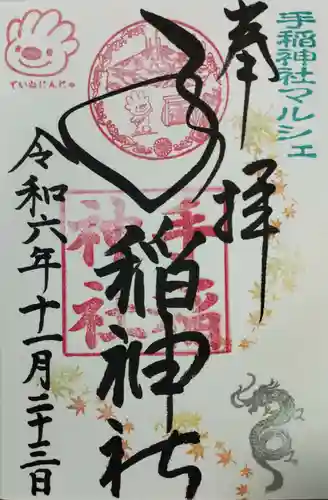 手稲神社マルシェ
奉拝
手稲神社
手稲神社
令和六年十一月二十三日
ていぬにんにゃ